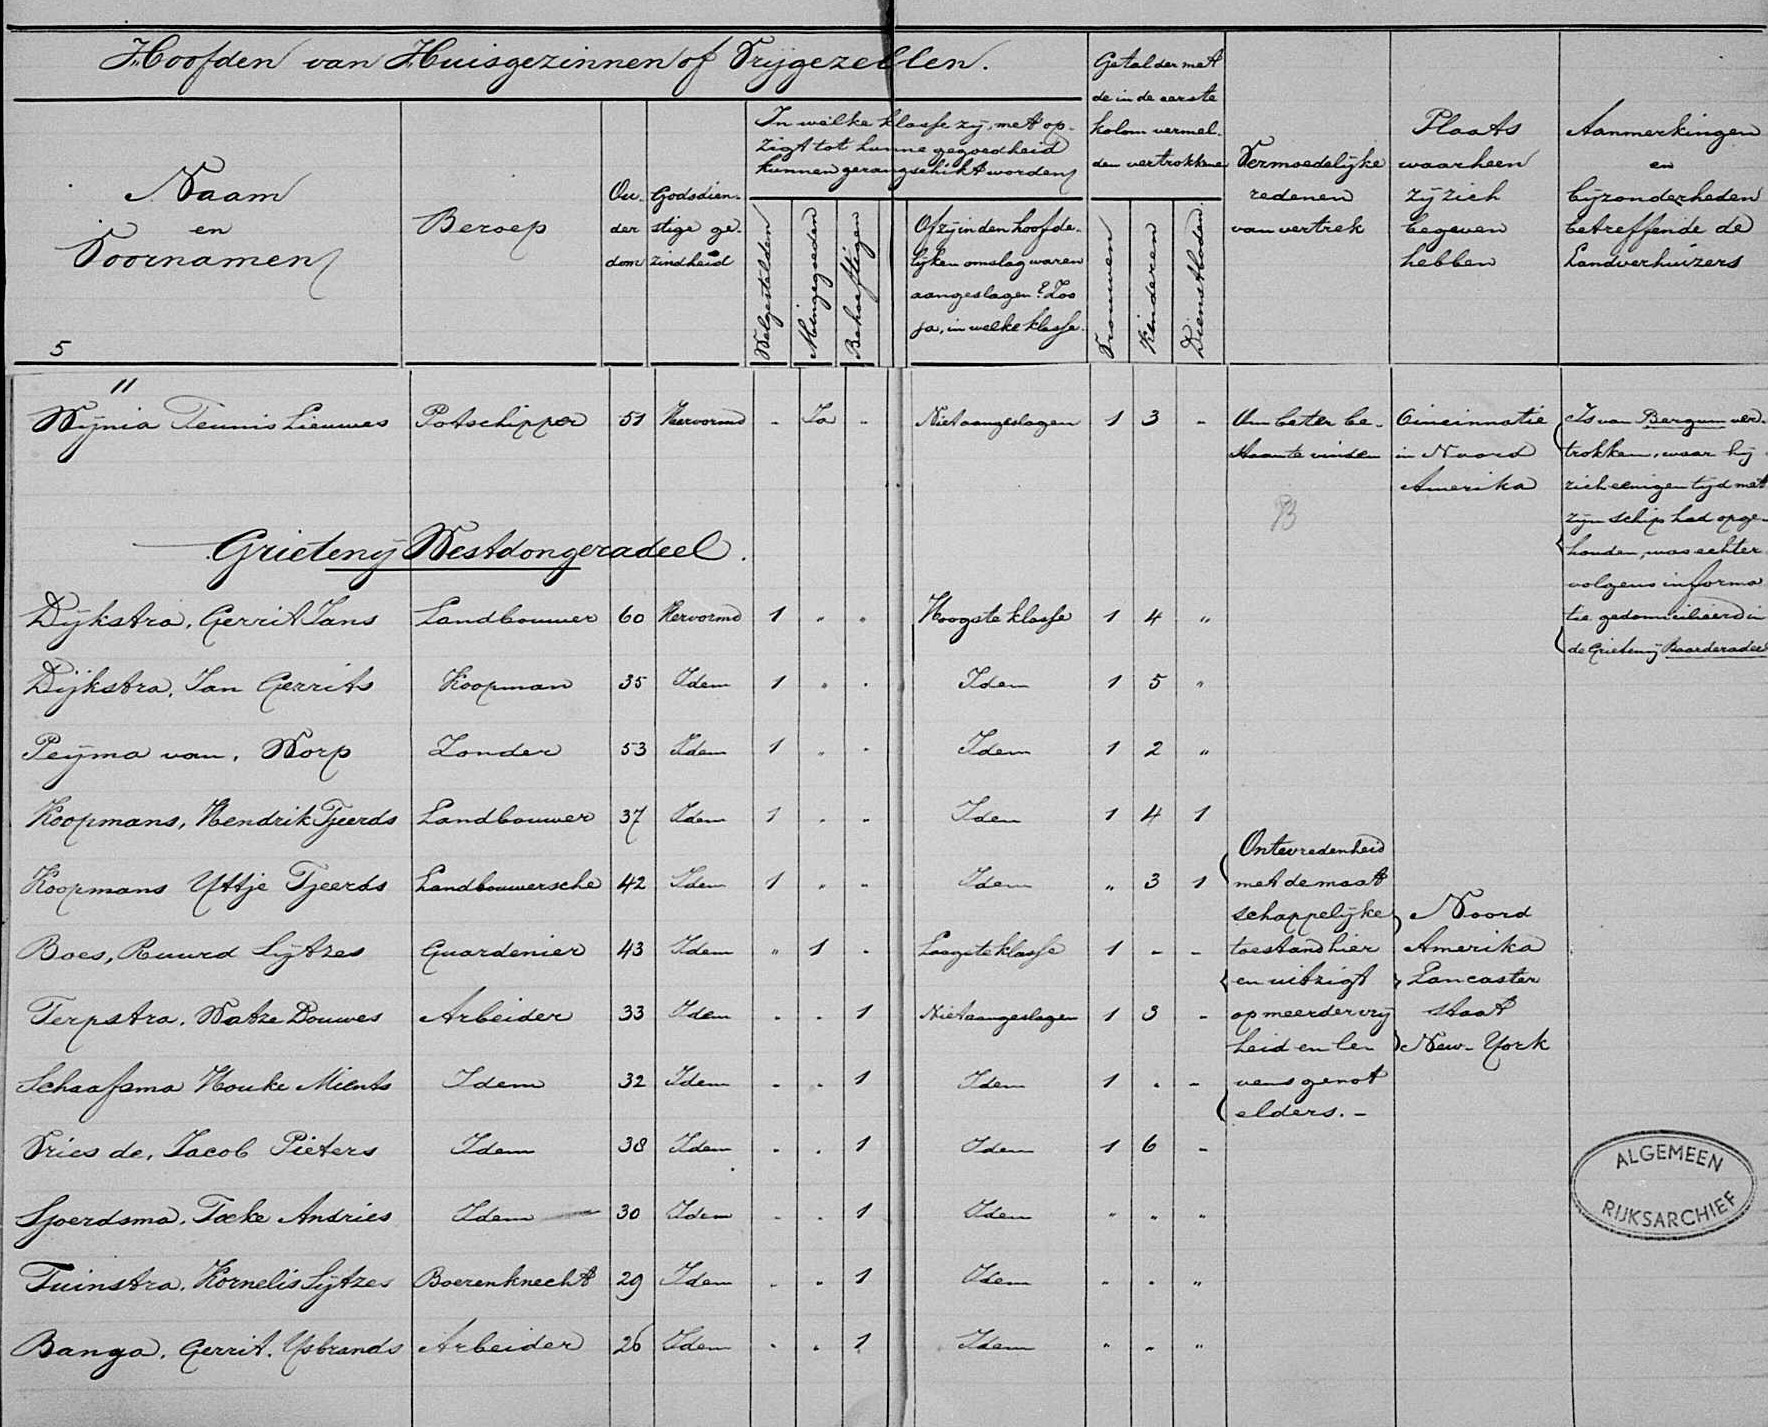 Hoofden van Huisgezinnen of Vrijgezellen.
Getal der met
de in de eerste
kolom vermel-
den vertrokkene
Naam
en
Voornamen
5
Beroep
Ou-
der
dom
Godsdien-
stige ge-
zindheid
In welke klasse zij, met op-
zigt tot hunne gegoedheid
kunnen gerangschikt worden
Welgestelden
Mingegoeden
Behoeftigen
Of zij in den hoofde-
lijken omslag waren
aangeslagen? Zoo
ja, in welke klasse.
Vrouwen
Kinderen
Dienstboden
Vermoedelijke
redenen
van vertrek
Plaats
waarheen
zij zich
begeven
hebben
Aanmerkingen
en
bijzonderheden
betreffende de
Landverhuizers
11
Wijnia Teunis Lieuwes Potschipper 51 Hervormd - Ja - Niet aangeslagen 1 3 -
Om beter be-
staan te vinden
Cincinnatie
in Noord
Amerika
Is van Bergum ver-
trokken, waar hij
zich eenigen tijd met
zijn schip had opge-
houden, was echter
volgens informa
tie gedomicilieerd in
de Grietenij Baarderadeel
B
Grietenij Westdongeradeel.
Dijkstra, Gerrit Jans Landbouwer 60 Hervormd 1 " " Hoogste klasse 1 4 "
Dijkstra, Jan Gerrits Koopman 35 Idem 1 " " Idem 1 5 "
Peijma van, Worp Zonder 53 Idem 1 " " Idem 1 2 "
Koopmans, Hendrik Tjeerds Landbouwer 37 Idem 1 " " Idem 1 4 1
Koopmans Yttje Tjeerds Landbouwersche 42 Idem 1 " " Idem " 3 1
Boes, Ruurd Lijtzes Guardenier 43 Idem " 1 - Laagste klasse 1 - -
Terpstra, Watze Douwes Arbeider 33 Idem - - 1 Niet aangeslagen 1 3 -
Schaafsma Houke Mients Idem 32 Idem - - 1 Idem 1 - -
Vries de, Jacob Pieters Idem 38 Idem - - 1 Idem 1 6 -
Sjoerdsma, Tæke Andries Idem 30 Idem - - 1 Idem " " "
Tuinstra, Kornelis Lijtzes Boerenknecht 29 Idem - - 1 Idem " " "
Banga, Gerrit Ysbrands Arbeider 26 Idem - - 1 Idem " " "
Ontevredenheid
met de maat
schappelijke
toestand hier
en uitzigt
op meerder vrij
heid en le-
vens genot
elders. -
Noord
Amerika
Lancaster
staat
New-York
ALGEMEEN
RIJKSARCHIEF